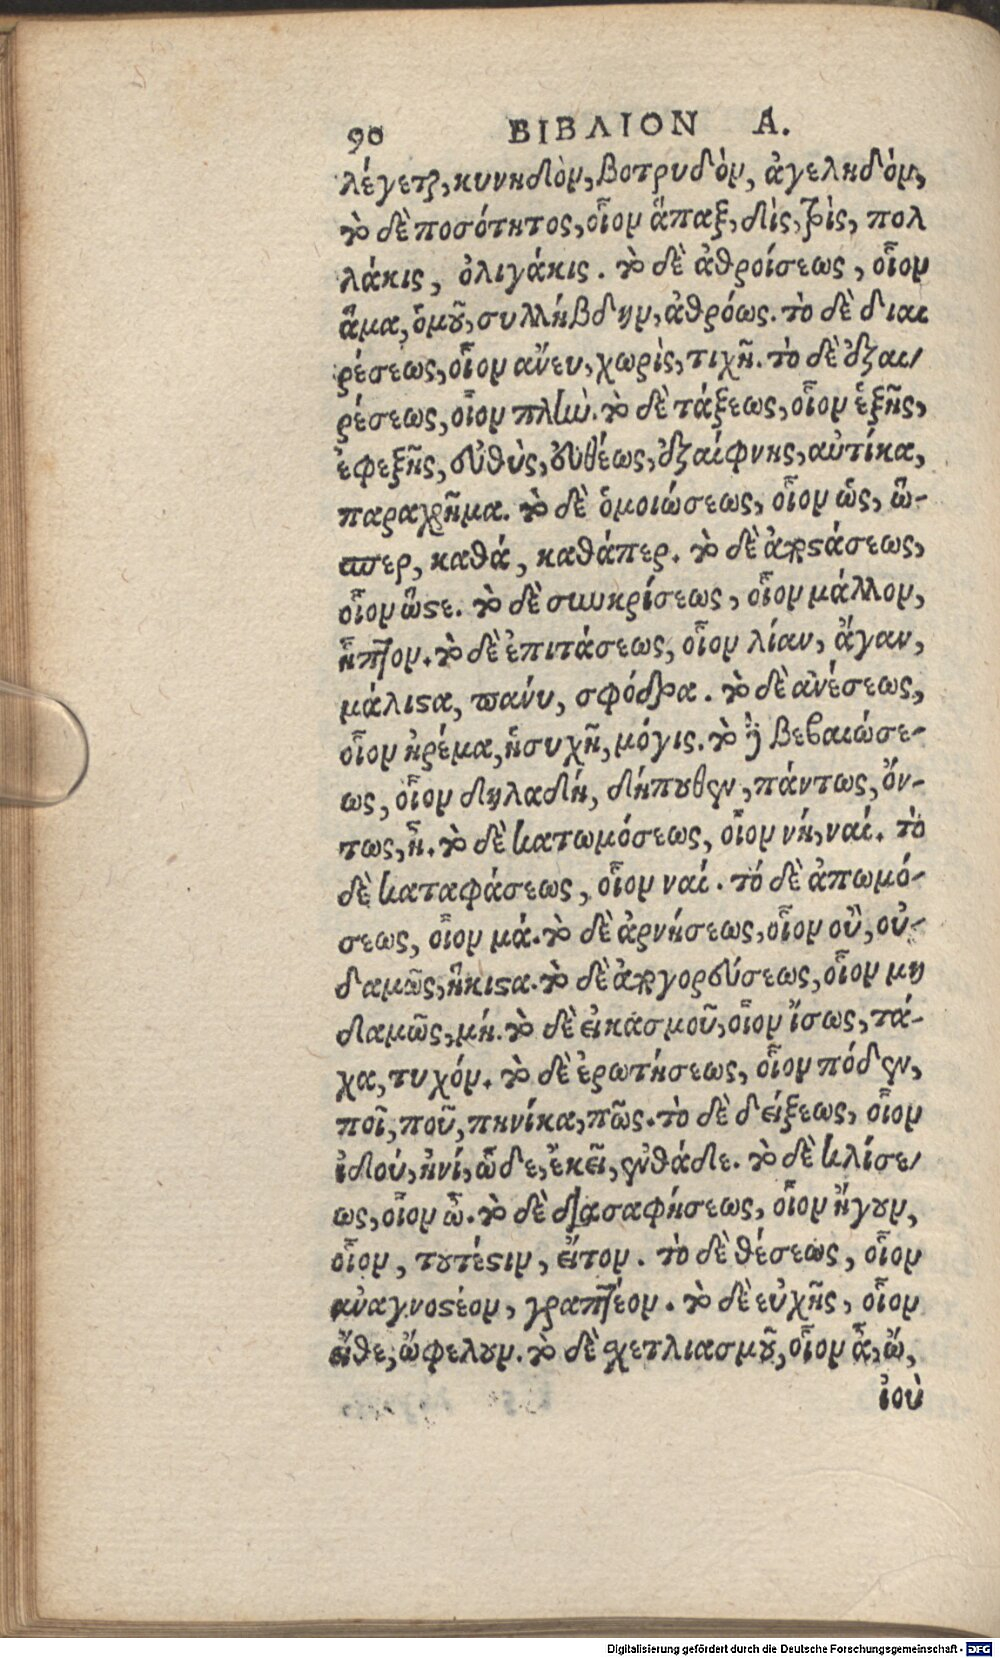 90 ΒΙΒΛΙΟΝ Α.
λέγεται, κυνηδὸν, βοτρυδὸν, ἀγεληδόν,
τὸ δὲ ποσότητος, οἷον ἅπαξ, δὶς, τρὶς, πολ
λάκις, ὀλιγάκις. τὸ δὲ ἀθροίσεως, οἷον
ἅμα, ὁμοῦ, συλλήβδην, ἀθρόως. τὸ δὲ διαι
ρέσεως, οἷον ἄνευ, χωρὶς, τιχῆ. τὸ δὲ ἐξαι/
ρέσεως, οἷον πλὴν. τὸ δὲ τάξεως, οἷον ἑξῆς,
ἐφεξῆς, εὐθὺς, εὐθέως, ἐξαίφνης, αὐτίκα,
παραχρῆμα. τὸ δὲ ὁμοιώσεως, οἷον ὡς, ὥ-
σπερ, καθά, καθάπερ. τὸ δὲ ἀποστάσεως,
οἷον ὥστε. τὸ δὲ συγκρίσεως, οἷον μάλλον,
ἧττον. τὸ δὲ ἐπιτάσεως, οἷον λίαν, ἄγαν,
μάλιστα, πάνυ, σφόδρα. τὸ δὲ ἀνέσεως,
οἷον ἠρέμα, ἡσυχῆ, μόγις. τὸ δὲ βεβαιώσε-
ως, οἷον δηλαδή, δήπουθεν, πάντως, ὄν-
τως, ἦ. τὸ δὲ κατωμόσεως, οἷον νή, ναί. τὸ
δὲ καταφάσεως, οἷον ναί. τό δὲ ἀπωμό-
σεως, οἷον μά. τὸ δὲ ἀρνήσεως, οἷον οὒ, οὐ-
δαμῶς, ἥκιστα. τὸ δὲ ἀπαγορεύσεως, οἷον μη
δαμῶς, μή. τὸ δὲ εἰκασμοῦ, οἷον ἴσως, τά-
χα, τυχόν. τὸ δὲ ἐρωτήσεως, οἷον πόθεν,
ποῖ, ποῦ, πηνίκα, πῶς. τὸ δὲ δείξεως, οἷον
ἰδού, ἠνί, ὧδε, ἔκεῖ, ἐνθάδε. τὸ δὲ κλίσε/
ως, οἷον ὦ. τὸ δὲ διασαφήσεως, οἷον ἤγουν,
οἷον, τουτέστιν, εἴτον. τὸ δὲ θέσεως, οἷον
ἀναγνοστέον, γραπτέον. τὸ δὲ εὐχῆς, οἷον
εἴθε, ὤφελον. τὸ δὲ σχετλιασμοῦ, οἷον ἆ, ὤ,
ἰοὺ
Digitalisierung gefördert durch die Deutsche Forschungsgemeinschaft - DFG